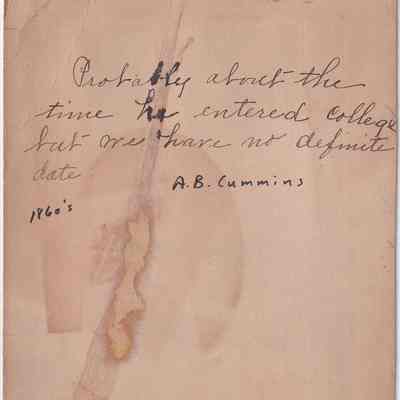 Probably about the
time he entered college
but we have no definite
date
A.B. Cummins
1860's